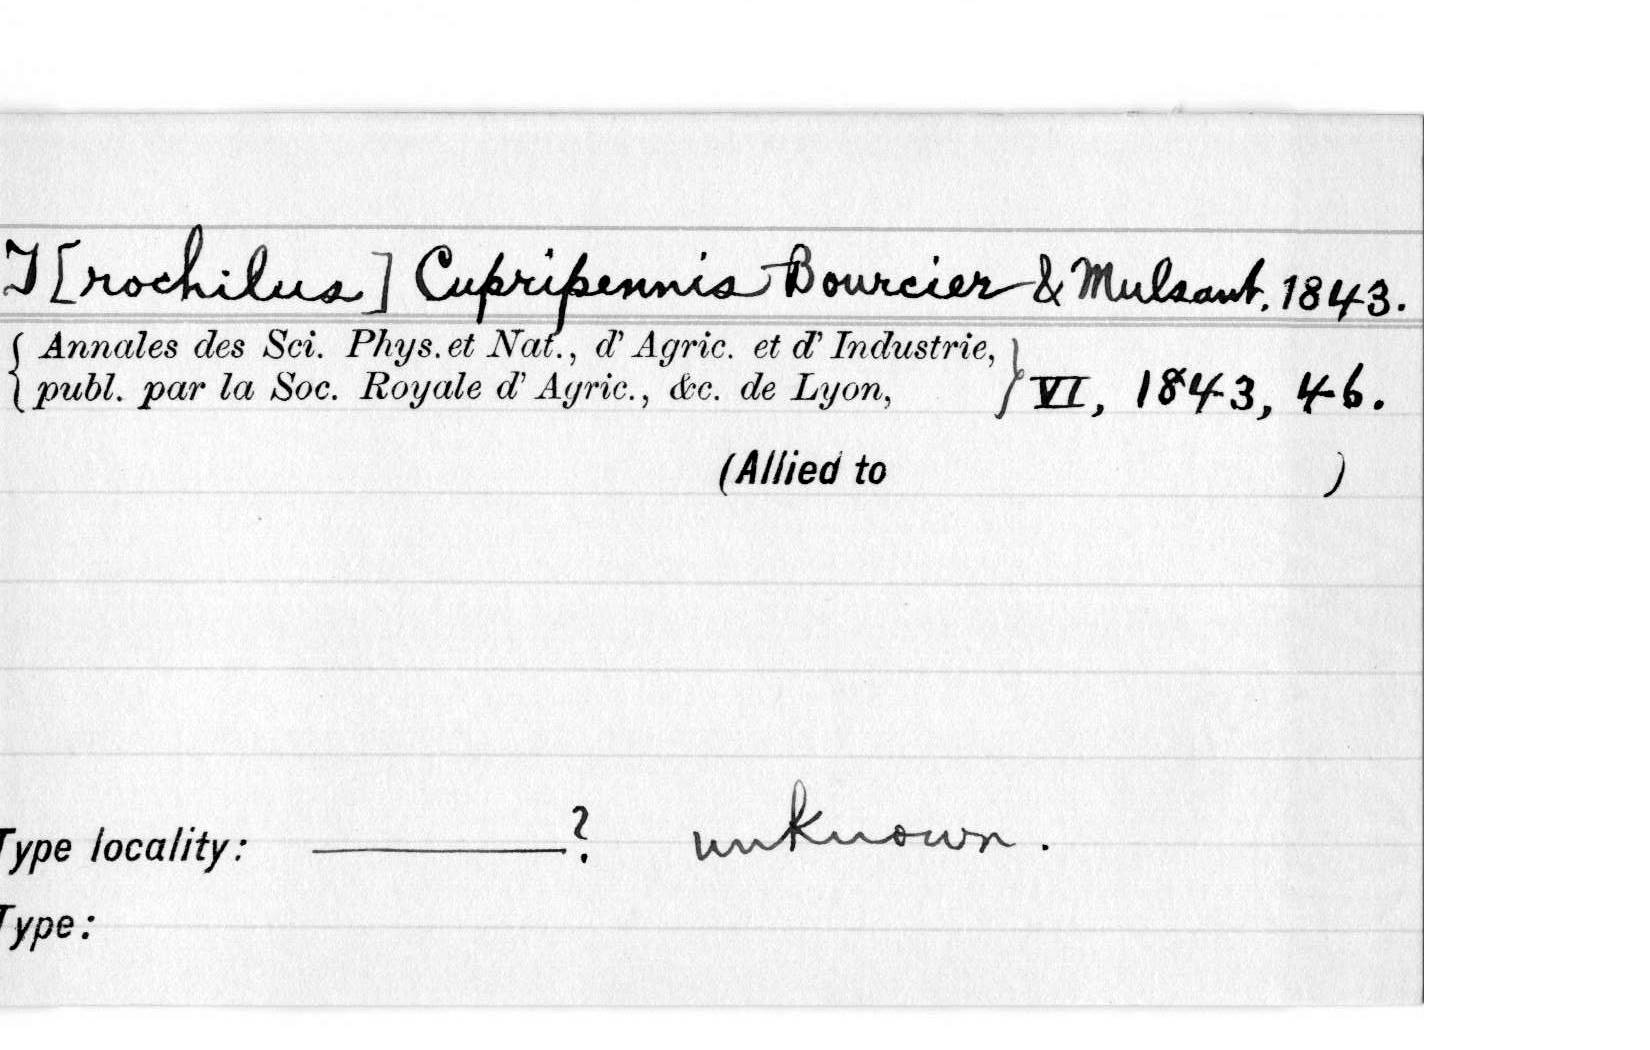 T[rochilus] Cupripennis Bourcier & Mulsant. 1843.
{ Annales des Sci. Phys. et Nat., d'Agric. et d'Industrie,
publ. par la Soc. Royale d'Agric., &c. de Lyon, } VI, 1843, 46.
(Allied to )
Type locality: ———? unknown.
Type: